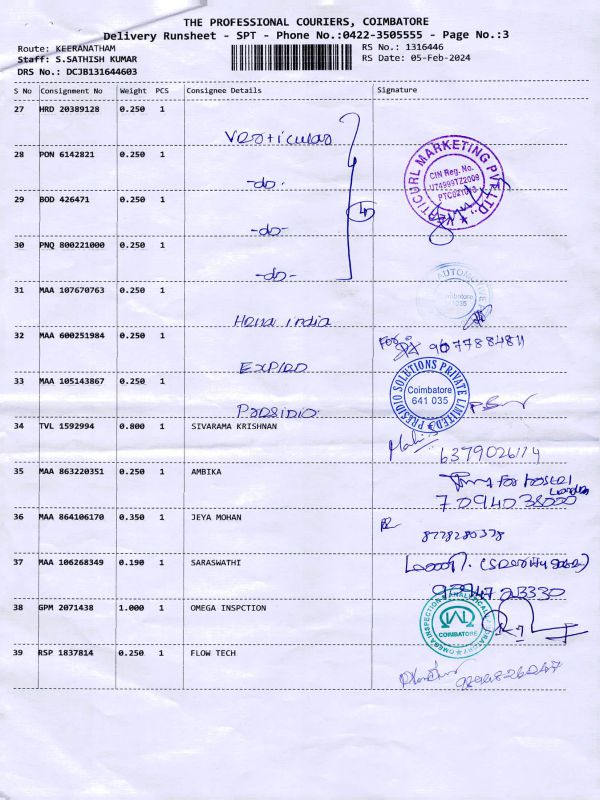 THE PROFESSIONAL COURIERS, COIMBATORE
Delivery Runsheet - SPT - Phone No.:0422-3505555 - Page No.:3
Route: KEERANATHAM
RS No.: 1316446
Staff: S.SATHISH KUMAR
RS Date: 05-Feb-2024
DRS No.: DCJB131644603
S No Consignment No Weight PCS Consignee Details Signature
27 HRD 20389128 0.250 1
Verticular
28 PON 6142821 0.250 1
-do-
VERTICURL MARKETING PVT LTD.
CIN Reg. No.
U74999TZ2009
29 BOD 426471 0.250 1
-do-
4
30 PNQ 800221000 0.250 1
-do-
31 MAA 107670763 0.250 1
Hena india
AUTOMOTIVE
Coimbatore
32 MAA 600251984 0.250 1
For 9077884811
33 MAA 105143867 0.250 1
Presidio
PRESIDIO SOLUTIONS PRIVATE LIMITED
Coimbatore
641 035
34 TVL 1592994 0.800 1 SIVARAMA KRISHNAN
35 MAA 863220351 0.250 1 AMBIKA
for hostel
36 MAA 864106170 0.350 1 JEYA MOHAN
8778280378
37 MAA 106268349 0.190 1 SARASWATHI
38 GPM 2071438 1.000 1 OMEGA INSPCTION
COIMBATORE
39 RSP 1837814 0.250 1 FLOW TECH